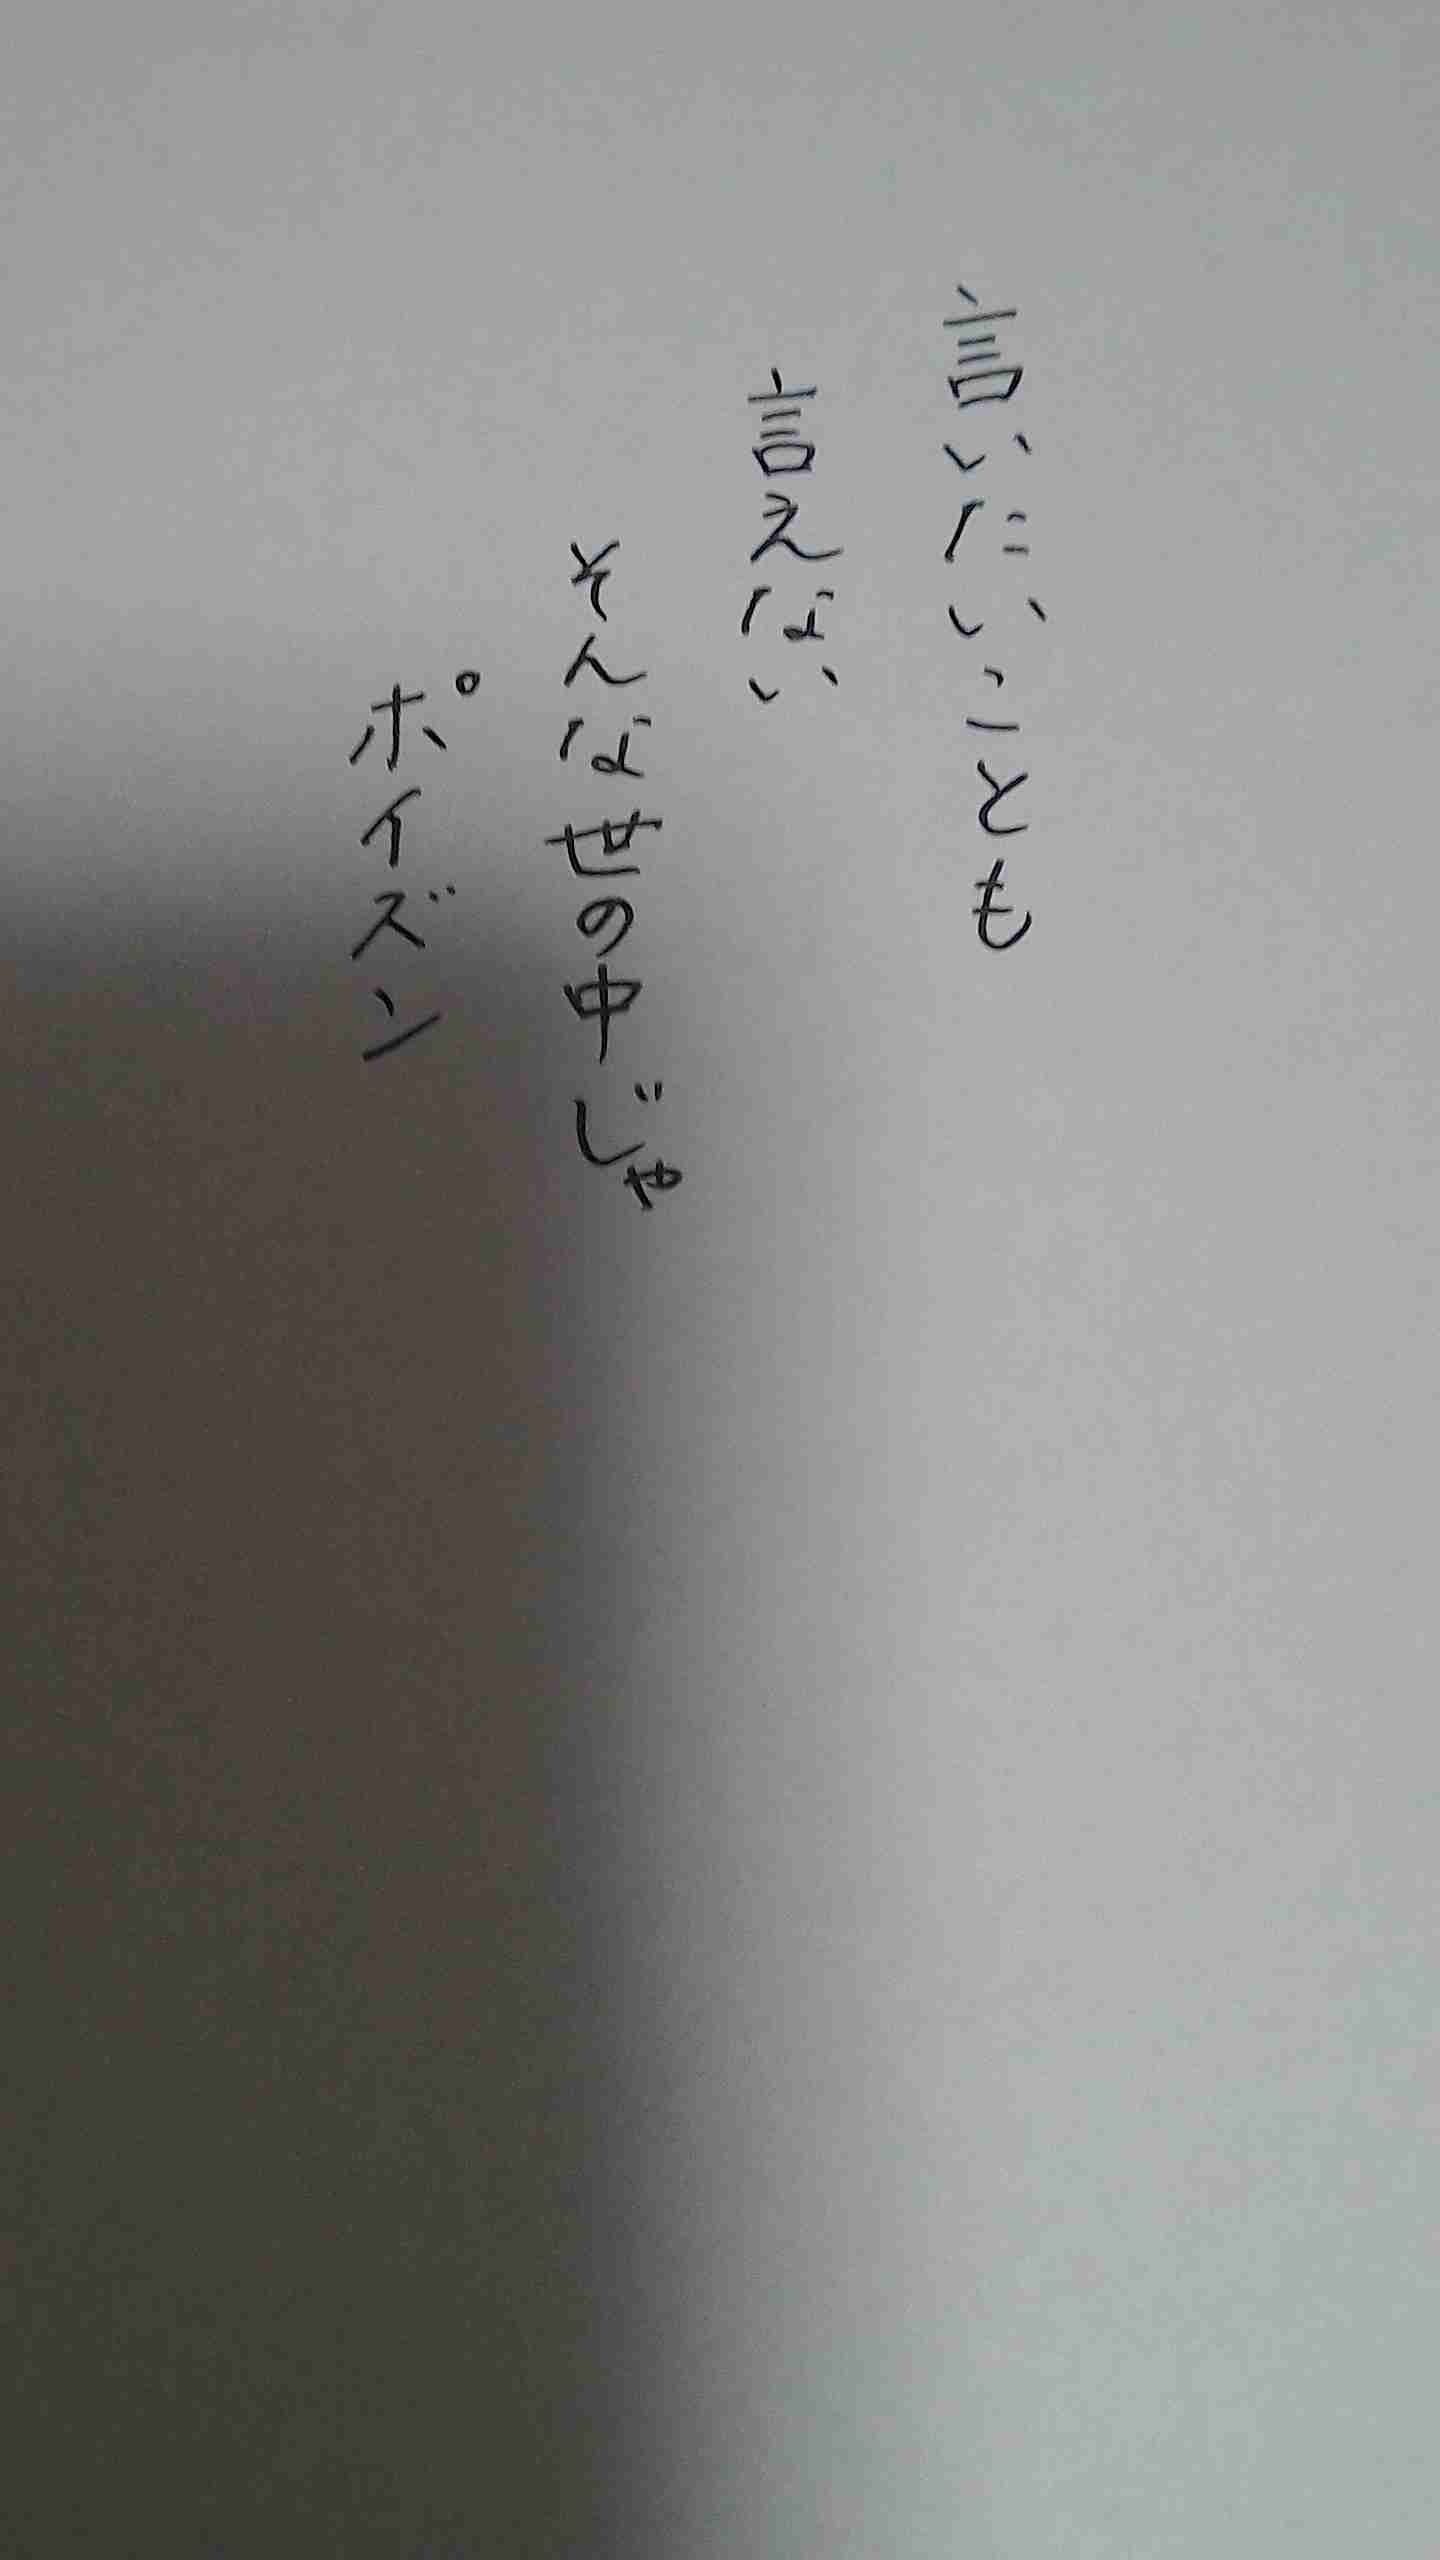 言いたいことも
言えない
そんな世の中じゃ
ポイズン